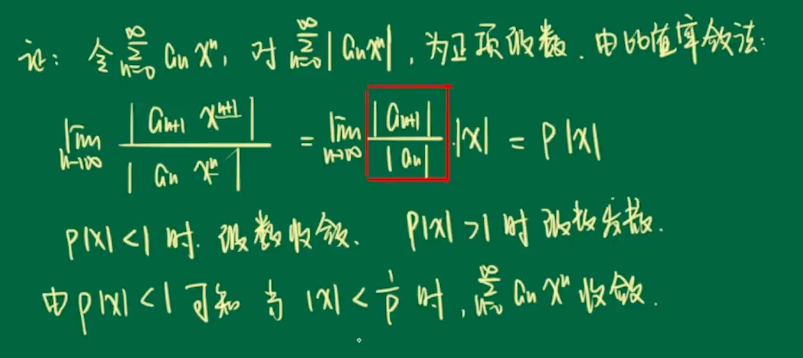 证: 令 ∑_{n=0}^{∞} aₙxⁿ, 对 ∑_{n=0}^{∞} |aₙxⁿ|, 为正项级数. 由比值审敛法:
lim_{n→∞} |aₙ₊₁ xⁿ⁺¹| / |aₙ xⁿ| = lim_{n→∞} |aₙ₊₁| / |aₙ| · |x| = ρ|x|
ρ|x| < 1 时. 级数收敛. ρ|x| > 1 时 级数发散.
由 ρ|x| < 1 可知 当 |x| < 1/ρ 时, ∑_{n=0}^{∞} aₙxⁿ 收敛.